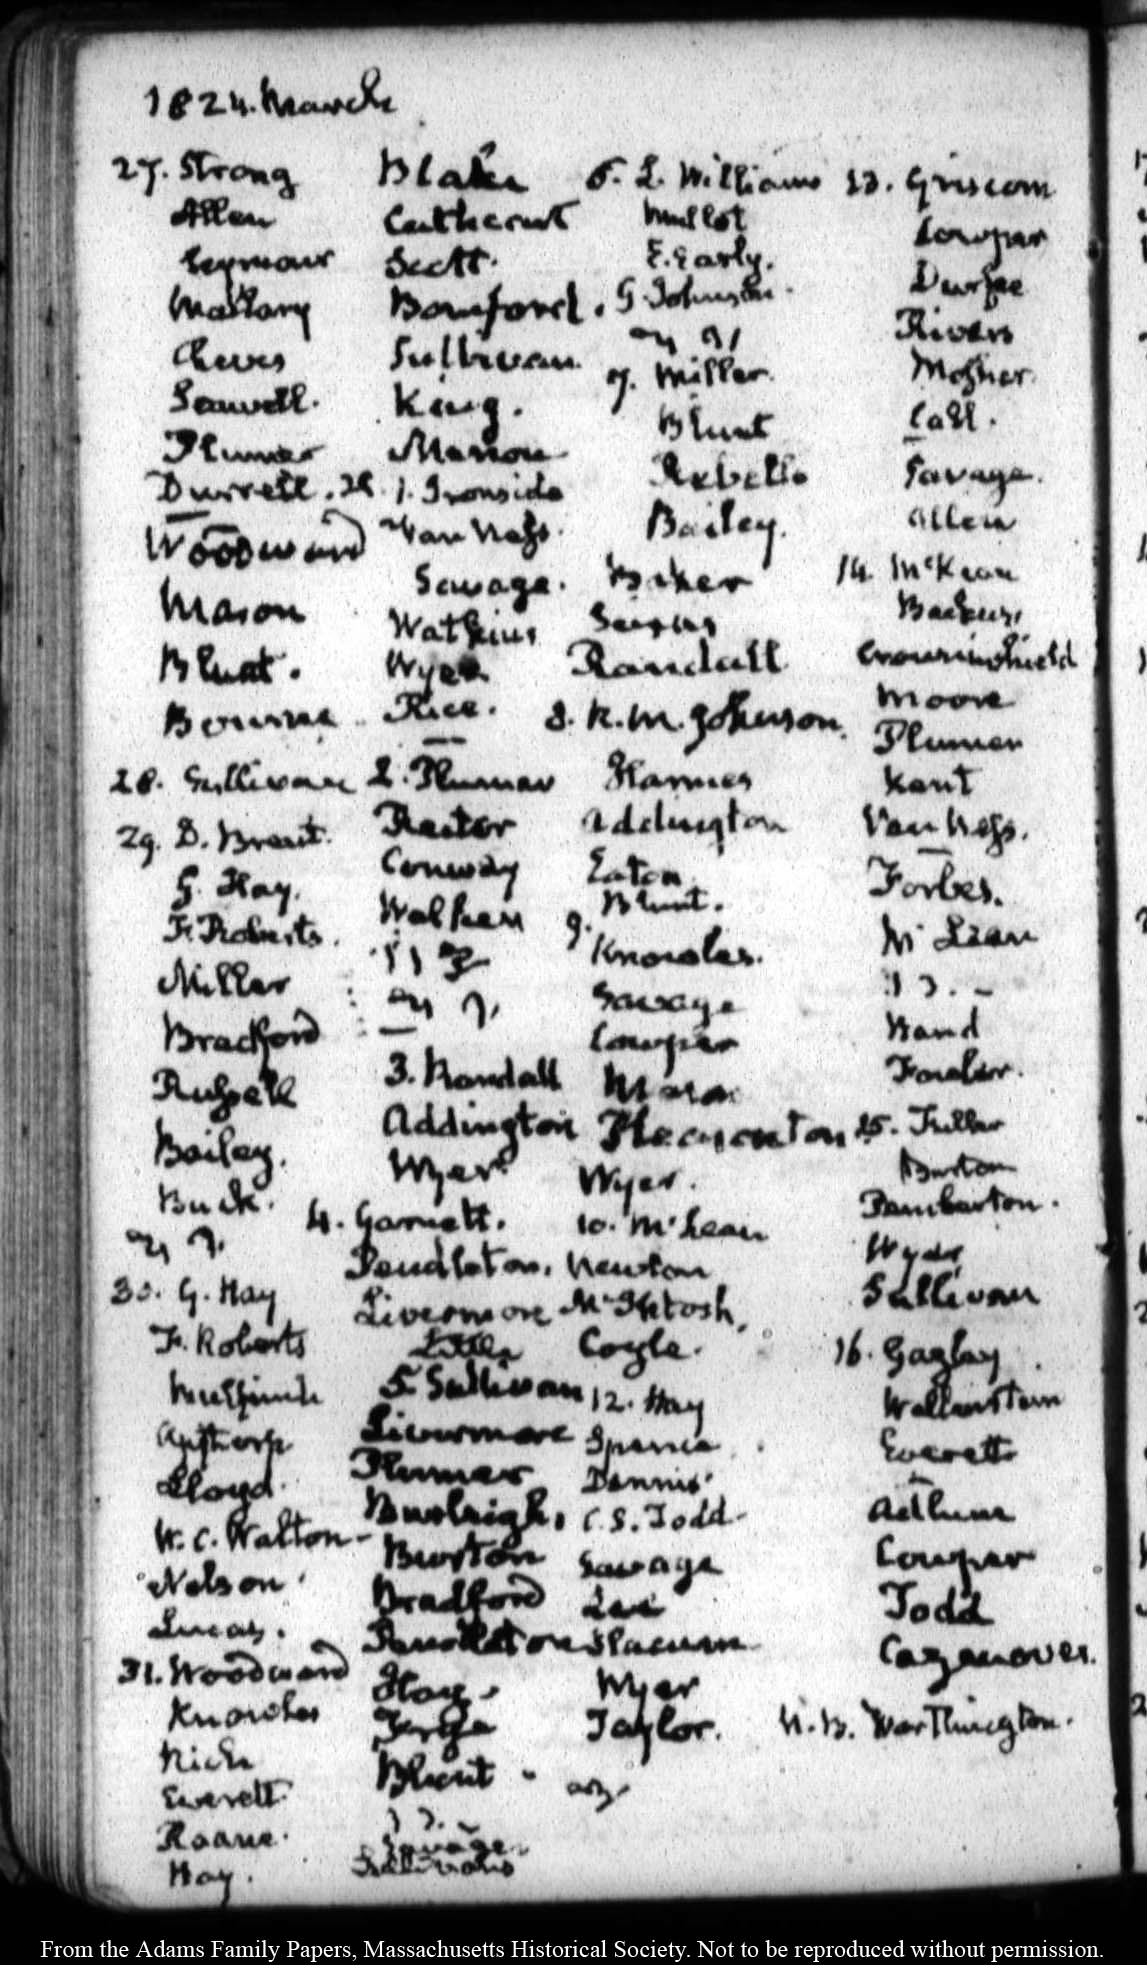 1824. March
27. Strong
Allen
Seymour
Mallary
Cheves
Seawell.
Plumer
Durrett.
Woodward
Mason
Blunt.
Bourne
28. Sullivan
29. D. Brent.
G. Hay.
F. Roberts.
Miller
Bradford
Russell
Bailey.
Buck.
30. G. Hay
F. Roberts
Apthorp
Lloyd.
W. C. Walton
Nelson
Lucas.
31. Woodward
Knowles
Rich
Everett
Roane.
Hay.
Blake
Cathcart
Scott.
Bomford.
Sullivan.
King.
Marion
1. Ironside
Van Ness.
Savage.
Watkins
Wyer
Rice.
2. Plumer
Rector
Conway
Walker
3. Randall
Addington
Wyer
4. Garnett.
Pendleton.
Livermore
Little
5. Sullivan
Livermore
Plumer
Burleigh.
Burton
Bradford
Pendleton
Hay.
Blunt
Savage.
Sullivans
6. L. Williams
E. Early.
G. Johnson.
7. Miller.
Blunt
Rebello
Bailey.
Baker
Randall
8. R. M. Johnson.
Addington
Eaton
Blunt.
9. Knowles.
Savage
Cowper
Pleasonton
Wyer.
10. McLean
Newton
McIntosh.
Coyle.
12. Hay
Spence
Dennis
C. S. Todd
Savage
Lee
Slacum
Wyer
Taylor.
13. Griscom
Cowper
Durfee
Rivers
Mosher.
Call.
Savage.
Allen
14. McKean
Backus
Crowninshield
Moore
Plumer
Kent
Van Ness.
Forbes.
McLean
Hand
Fowler.
15. Fuller
Burton
Pemberton.
Wyer
Sullivan
16. Gazlay
Wallenstein
Everett
Adlum
Cowper
Todd
Cazenoves.
N.B. Worthington.
From the Adams Family Papers, Massachusetts Historical Society. Not to be reproduced without permission.